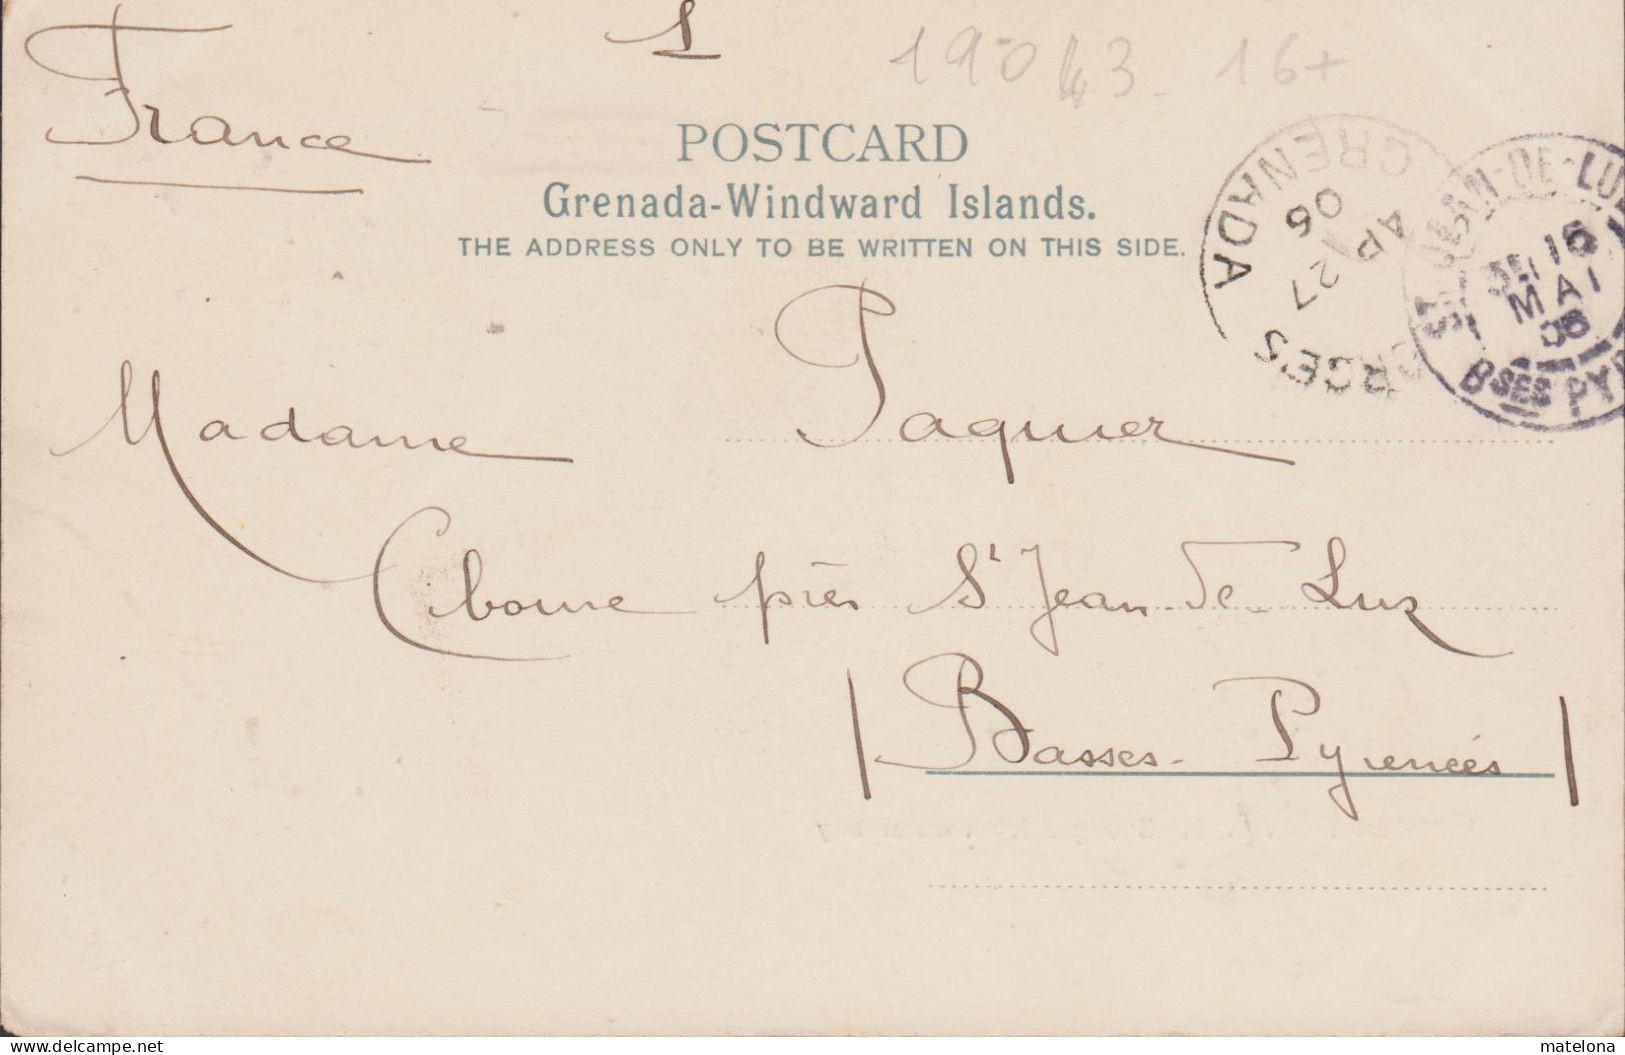 France
1
190 3. 16+
POSTCARD
Grenada-Windward Islands.
THE ADDRESS ONLY TO BE WRITTEN ON THIS SIDE.
GRENADA
AP 27
06
ST JEAN-DE-LUZ
16
MAI
06
BSES PYR
Madame Paquier
Ciboure près St Jean de Luz
Basses-Pyrénées
www.delcampe.net
matelona